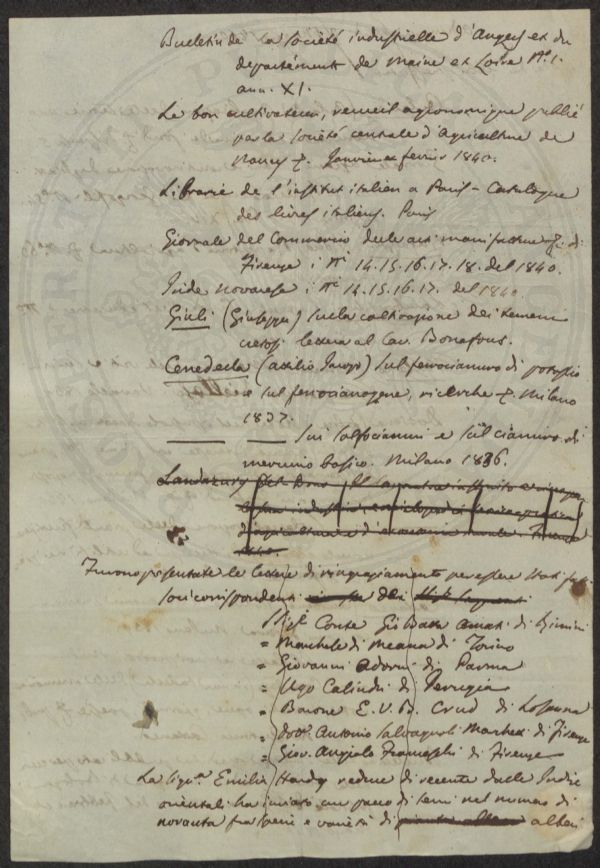 Bulletin de la Société industrielle d'Angers et du
département de Maine et Loire N.º 1.
ann. XI.
Le bon cultivateur, recueil agronomique publié
par la Société centrale d'Agriculture de
Nancy &. Janvier et fevrier 1840.
Librarie de l'institut italien a Paris - Catalogue
des livres italiens. Paris
Giornale del Commercio delle arti manifatture &. di
Firenze i N.i 14.15.16.17.18. del 1840.
Iride novarese i N.i 14.15.16.17. del 1840.
Giuli (Giuseppe) sulla coltivazione dei terreni
cretosi lettera al Cav. Bonafous.
Cenedella (Attilio Jacopo) sul ferrocianuro di potassio
e sul ferrocianogene, ricerche &. Milano
1837.
—— —— Sui solfocianuri e sul cianuro di
mercurio basico. Milano 1836.
Landazury Del Bono Il
Firenze
1840.
Furono presentate le lettere di ringraziamento per essere stati fatti
soci corrispondenti dai Sigg. seguenti
Sig. Conte Gio Batta Amati di Rimini
" Marchese di Meana di Torino
" Giovanni Adorni di Parma
" Ugo Calindri di Perugia
" Barone E. V. B. Crud di Losanna
" Dott. Antonio Salvagnoli Marchetti di Firenze
" Giov. Angiolo Franceschi di Firenze
La Sig.ra Emilia Hardy reduce di recente dalle Indie
orientali ha inviato un pacco di semi nel numero di
novanta fra specie e varietà di alberi